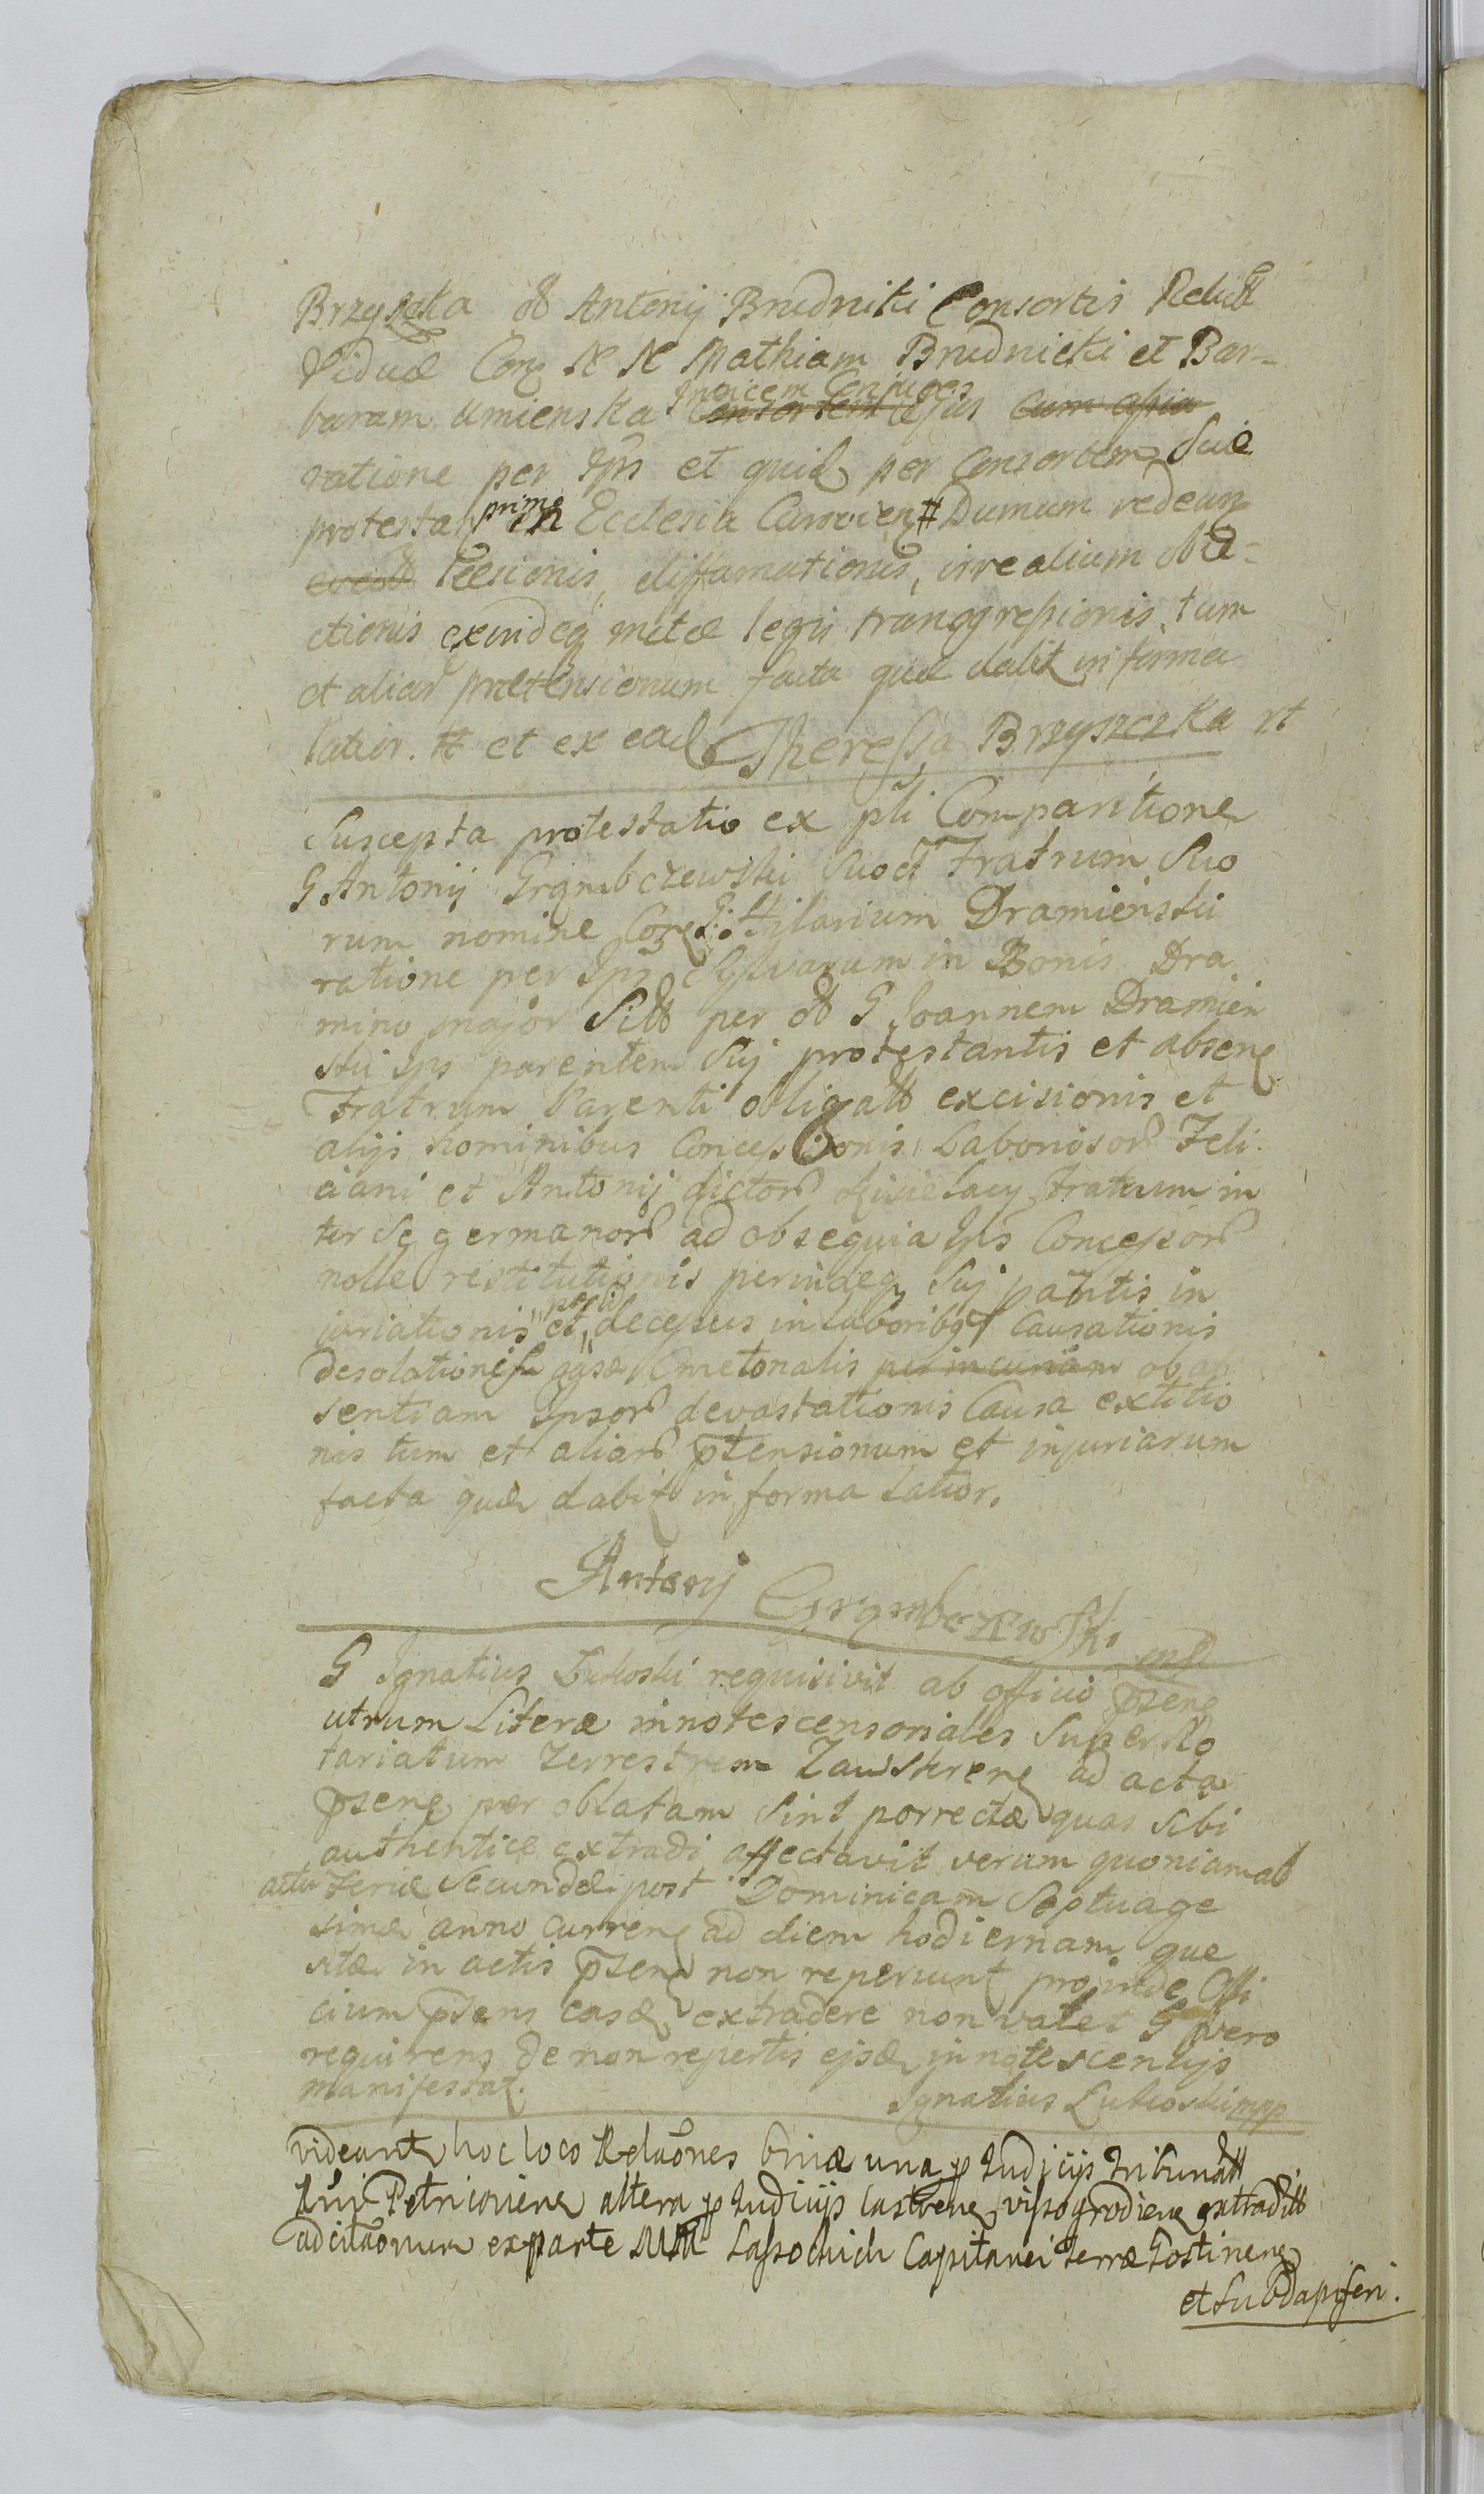 Brzyscka ol Antonij Brudnicki Consortis Relict
Viduæ Corq N N Mathiam Brudnicki et Bar-
baram Umienska Invicem Conjuges Consortem ejus cum aßia
ratione per Ips et quid per Consortem Suæ
protestat prime in Ecclesia # Dumum redeunq
læsionis, diffamationis, irrealium oble-
ctionis exindeq metæ legis transgreßionis, tum
et aliar prætensionum facta quæ dabit in forma
latior. # et ex ead Thereßia Brzyszczka rt
Suscepta protestatio ex psli Comparitione
G Antonij Grąmbczewski Suo et Fratrum Suo
rum nomine Corq G: Hilarium Dramienski
ratione per Ips Sylvarum in Bonis Dra
mino major Sitt per ol G Joannem Dramien
ski Ips parentem Sui protestantis et absenq
Fratrum Parenti obligatt excisionis et
alijs hominibus Conceßionis, Laboriosor Feli
ciani et Antonij dictor Fratrum in
ter Se germanor ad obsequia Ips Conceßor
nolle restitutionis perindeq Sui pantis in
juriationis et decessus in laboribq Causationis
desolationisq Cmetonalis per incuriam ob ab
sentiam Ipsor devastationis Causa extitio
nis tum et aliar ptensionum et injuriarum
facta quæ dabit in forma latior.
Antonij Grąmbczewski mp
G Ignatius Lukoski requisivit ab officio psenq
utrum Literæ innotescensoriales Super No
tariatum Terrestrem Zawskrenq ad acta
psenq per oblatam Sint porrectæ quas Sibi
authentice extradi affectavit verum quoniam ab
actu Feriæ Secundæ post Dominicam Septuage
simæ anno currenq ad diem hodiernam quæ
sitæ in actis psenq non reperiunt proinde Offi
cium psens easd extradere non valet G vero
requirens de non repertis ejsd innotescentijs
manifestat.
Ignatius Lukoski mpp
videant hoc loco Relaones binæ una p Judicijs Tribunatt
Rni Petricovienq altera p Judicijs Castrenq vissogrodienq extraditt
ad citaonum ex parte MM Laßockich Capitanei Terræ Gostinenq
et Subdapiferi.